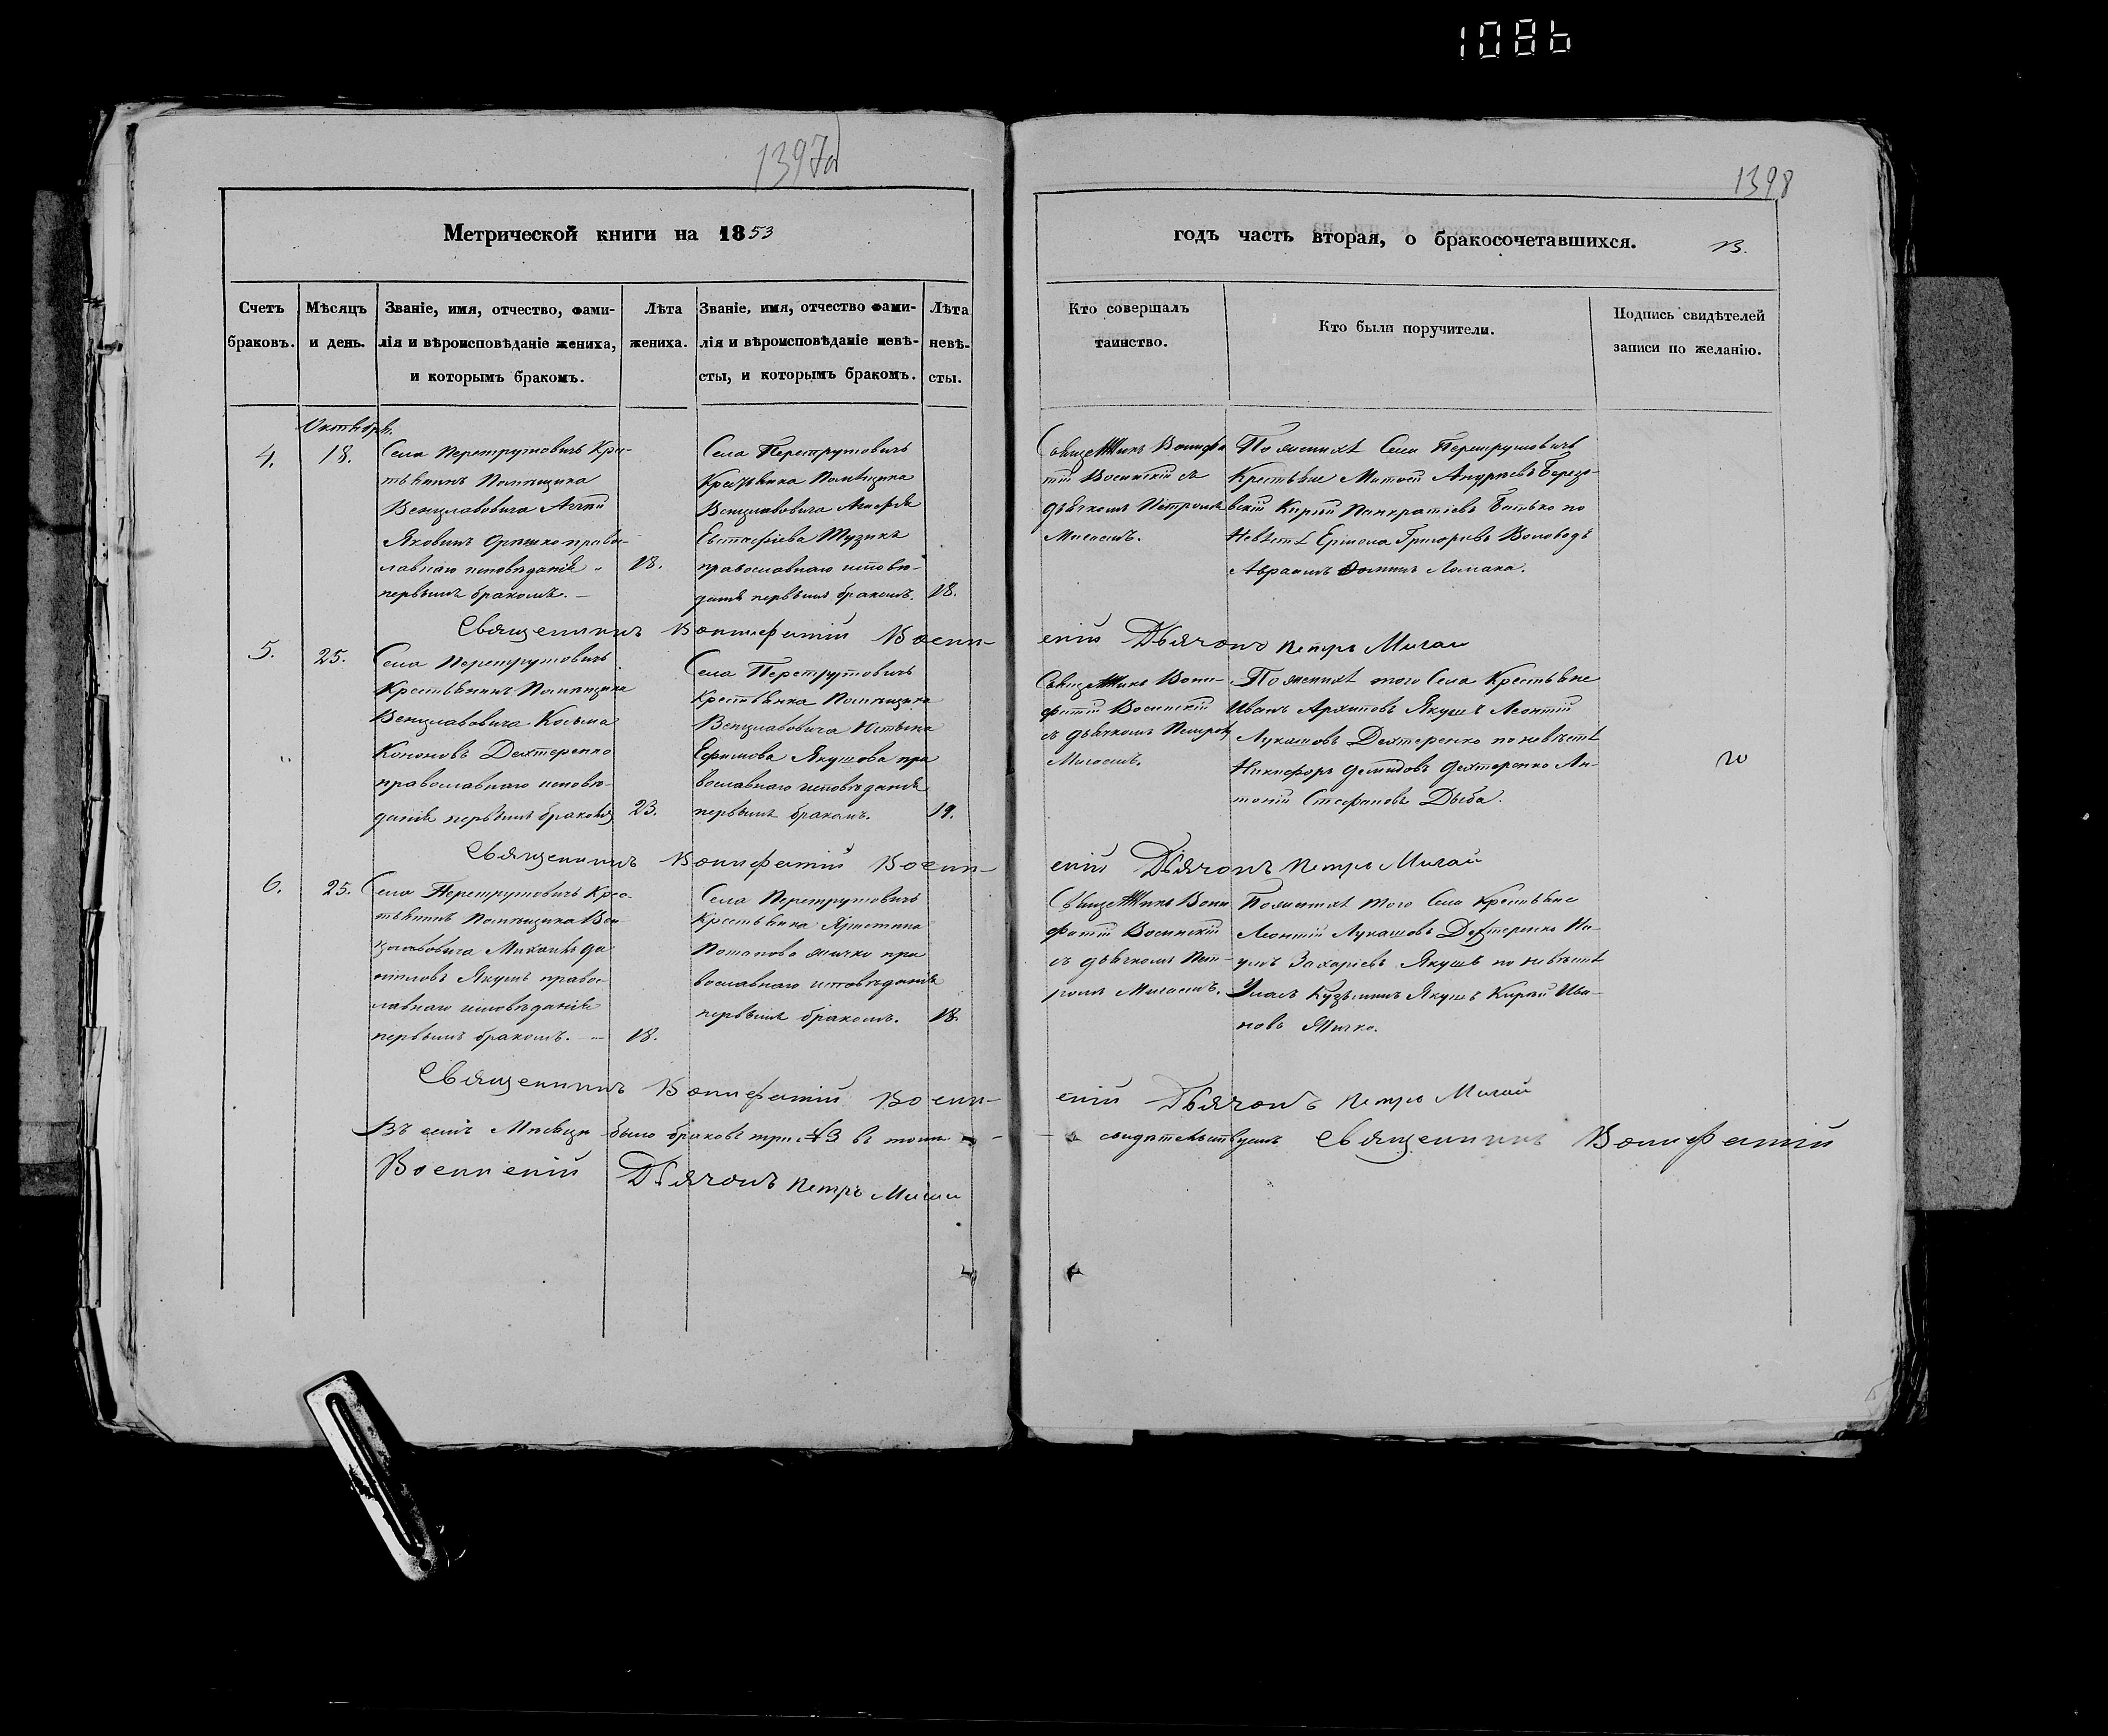 1086
1397
1398
Метрической книги на 1853
годъ часть вторая, о бракосочетавшихся.
Счетъ
браковъ.
Мѣсяцъ
и день.
Званіе, имя, отчество, фами-
лія и вѣроисповѣданіе жениха,
и которымъ бракомъ.
Лѣта
жениха.
Званіе, имя, отчество фами-
лія и вѣроисповѣданіе невѣ-
сты, и которымъ бракомъ.
Лѣта
невѣ-
сты.
Кто совершалъ
таинство.
Кто были поручители.
Подпись свидѣтелей
записи по желанію.
Октября.
4.
18.
Села Перетрутовичъ Кре-
стьянинъ Помѣщика
Венцлавовича
Яковъ правос-
лавнаго исповѣданія
первымъ бракомъ.
18.
Села Перетрутовичъ
Крестьянка Помѣщика
Венцлавовича Агафія
Евстафіева Музыка
православнаго исповѣ-
данія первымъ бракомъ.
18.
Вонифа
тій Восинскій съ
дьячкомъ Петромъ
Мигаемъ.
По женихѣ Села Перетрутовичъ
Крестьяне Андреевъ Берез-
вскій Кирил Панкратіевъ Батько по
Невѣстѣ Ермола Григорьевъ Воловодъ
Авраамъ Ломака.
Священникъ Вонифатій Восин-
скій Дьячокъ Петръ Мигай
5.
25.
Села Перетрутовичъ
Крестьянинъ Помѣщика
Венцлавовича Косьма
Кононовъ Дехтеренко
православнаго исповѣ-
данія первымъ бракомъ
23.
Села Перетрутовичъ
Крестьянка Помѣщика
Венцлавовича
Ефимова Якушова пра
вославнаго исповѣданія
первымъ бракомъ.
19.
Вони-
фатій Восинскій
съ дьячкомъ Петромъ
Мигаемъ.
По женихѣ того Села Крестьяне
Иванъ Архиповъ Якушъ Леонтій
Лукашовъ Дехтеренко по невѣстѣ
Никифоръ Демидовъ Дехтеренко Ан-
тоній Стефановъ Дыба.
Священникъ Вонифатій Восин-
скій Дьячокъ Петръ Мигай
6.
25.
Села Перетрутовичъ Крес-
тьянинъ Помѣщика Вен
цлавовича Михаилъ Да
ниловъ Якушъ правос
лавнаго исповѣданія
первымъ бракомъ.
18.
Села Перетрутовичъ
Крестьянка Христина
Потапова пра
вославнаго исповѣданія
первымъ бракомъ.
18.
Вони
фатій Восинскій
съ дьячкомъ Пет-
ромъ Мигаемъ.
По женихѣ того Села Крестьяне
Леонтій Лукашовъ Дехтеренко На-
умъ Захаріевъ Якушъ по невѣстѣ
Кузьминъ Якушъ Кирилъ Ива-
новъ
Священникъ Вонифатій Восин-
скій Дьячокъ Петръ Мигай
Въ семъ Мѣсяцѣ было браковъ три №3 въ томъ
свидѣтельствуемъ Священникъ Вонифатій
Восинскій Дьячокъ Петръ Мигай